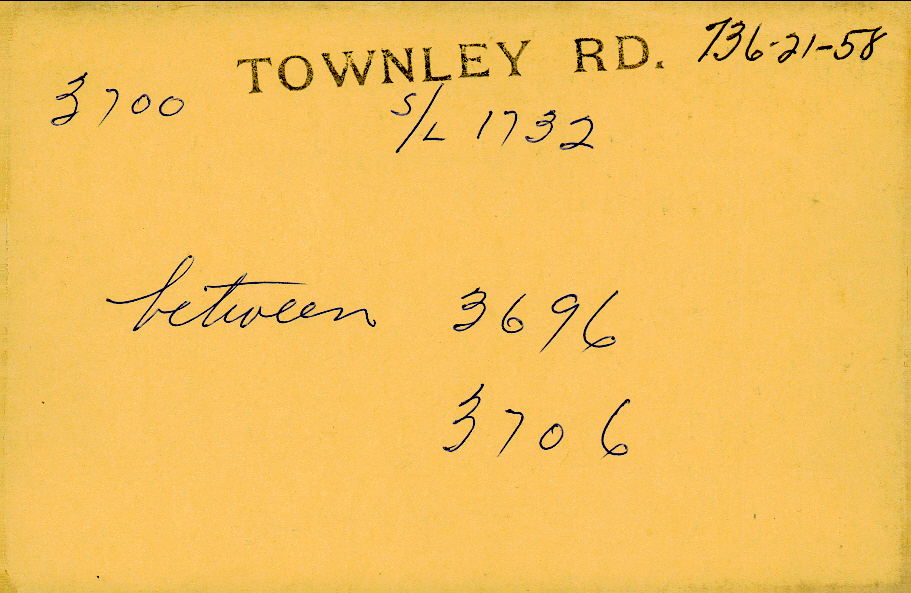 3700 TOWNLEY RD. 736-21-58
S/L 1732
between 3696
3706